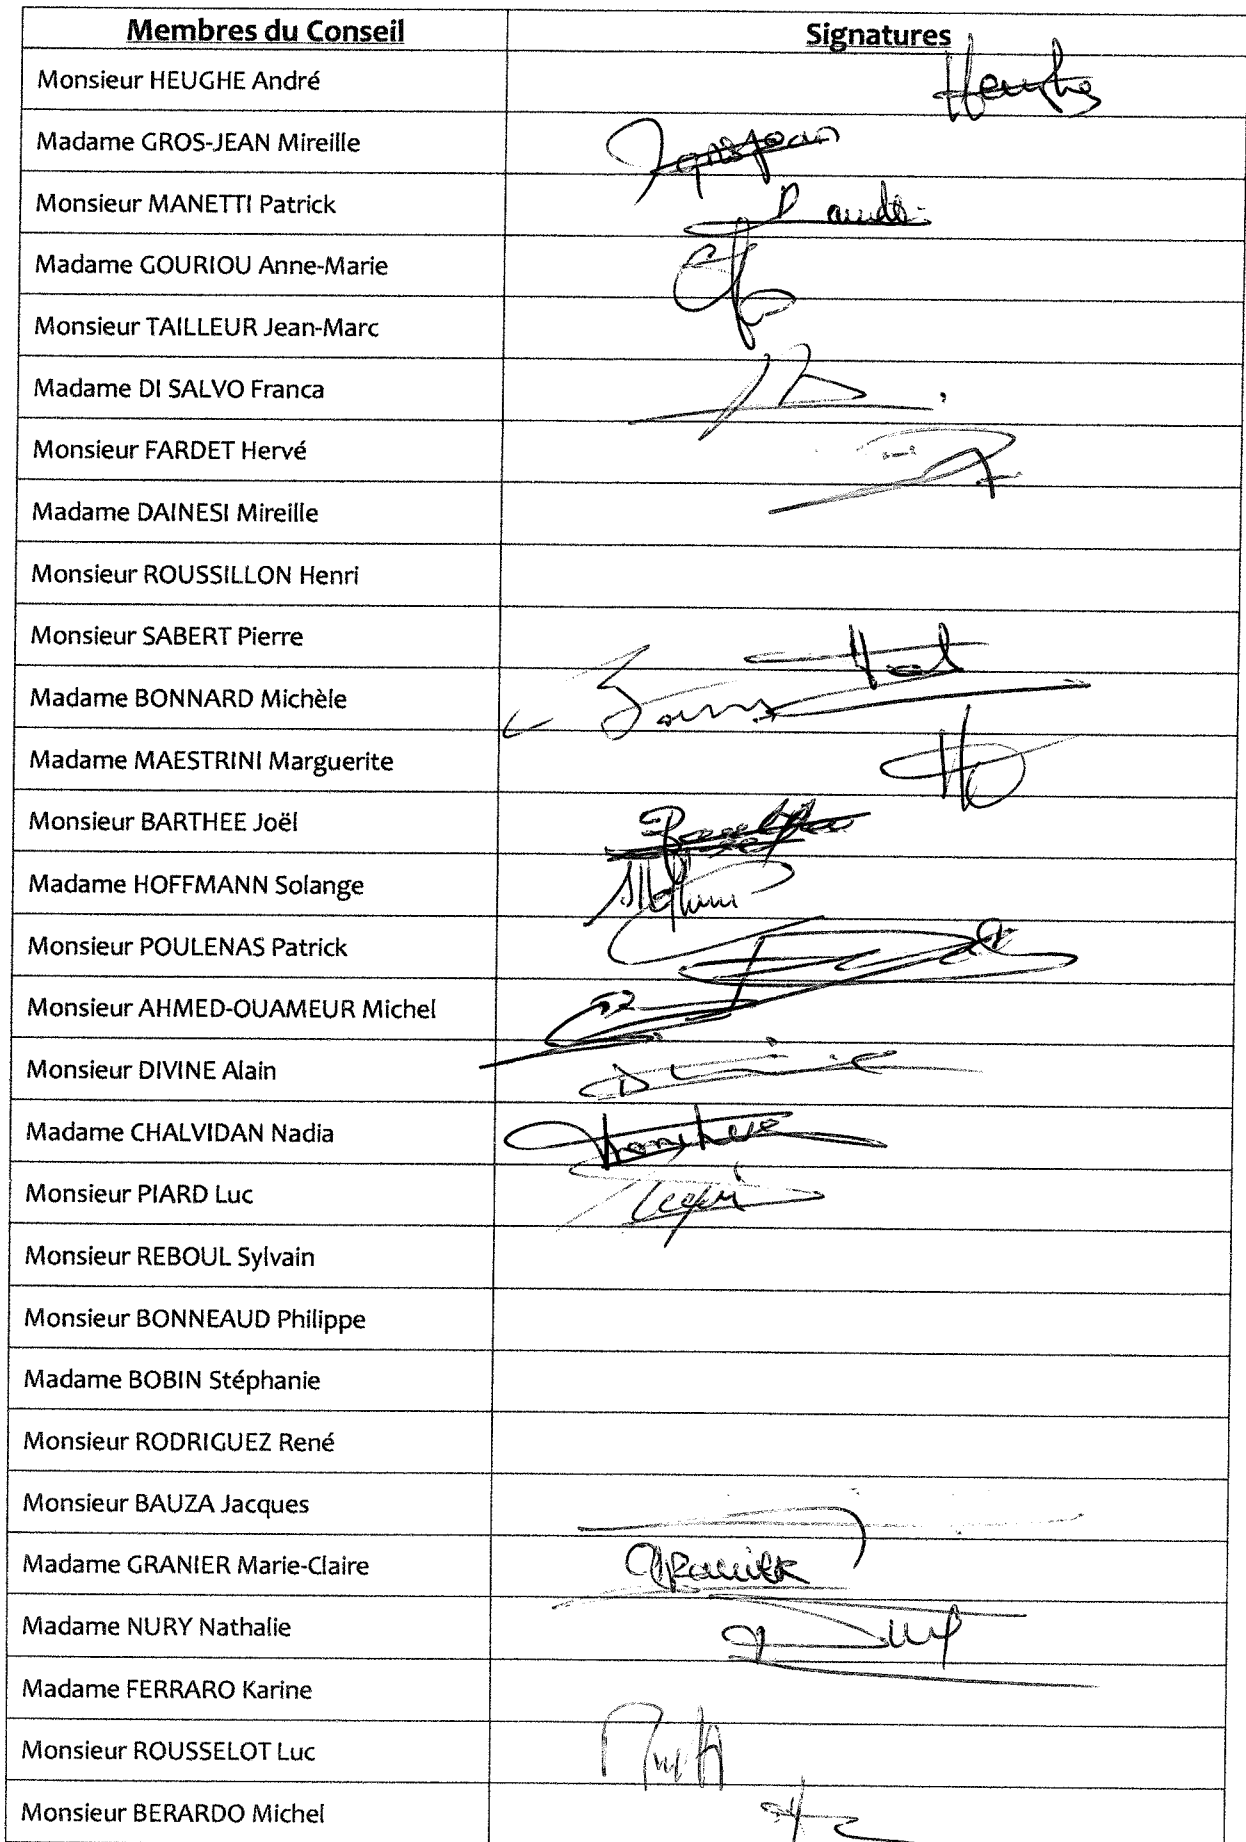 Membres du Conseil Signatures
Monsieur HEUGHE André Heughe
Madame GROS-JEAN Mireille
Monsieur MANETTI Patrick
Madame GOURIOU Anne-Marie
Monsieur TAILLEUR Jean-Marc
Madame DI SALVO Franca
Monsieur FARDET Hervé
Madame DAINESI Mireille
Monsieur ROUSSILLON Henri
Monsieur SABERT Pierre
Madame BONNARD Michèle
Madame MAESTRINI Marguerite
Monsieur BARTHEE Joël
Madame HOFFMANN Solange
Monsieur POULENAS Patrick
Monsieur AHMED-OUAMEUR Michel
Monsieur DIVINE Alain Divine
Madame CHALVIDAN Nadia
Monsieur PIARD Luc
Monsieur REBOUL Sylvain
Monsieur BONNEAUD Philippe
Madame BOBIN Stéphanie
Monsieur RODRIGUEZ René
Monsieur BAUZA Jacques
Madame GRANIER Marie-Claire GRANIER
Madame NURY Nathalie
Madame FERRARO Karine
Monsieur ROUSSELOT Luc
Monsieur BERARDO Michel